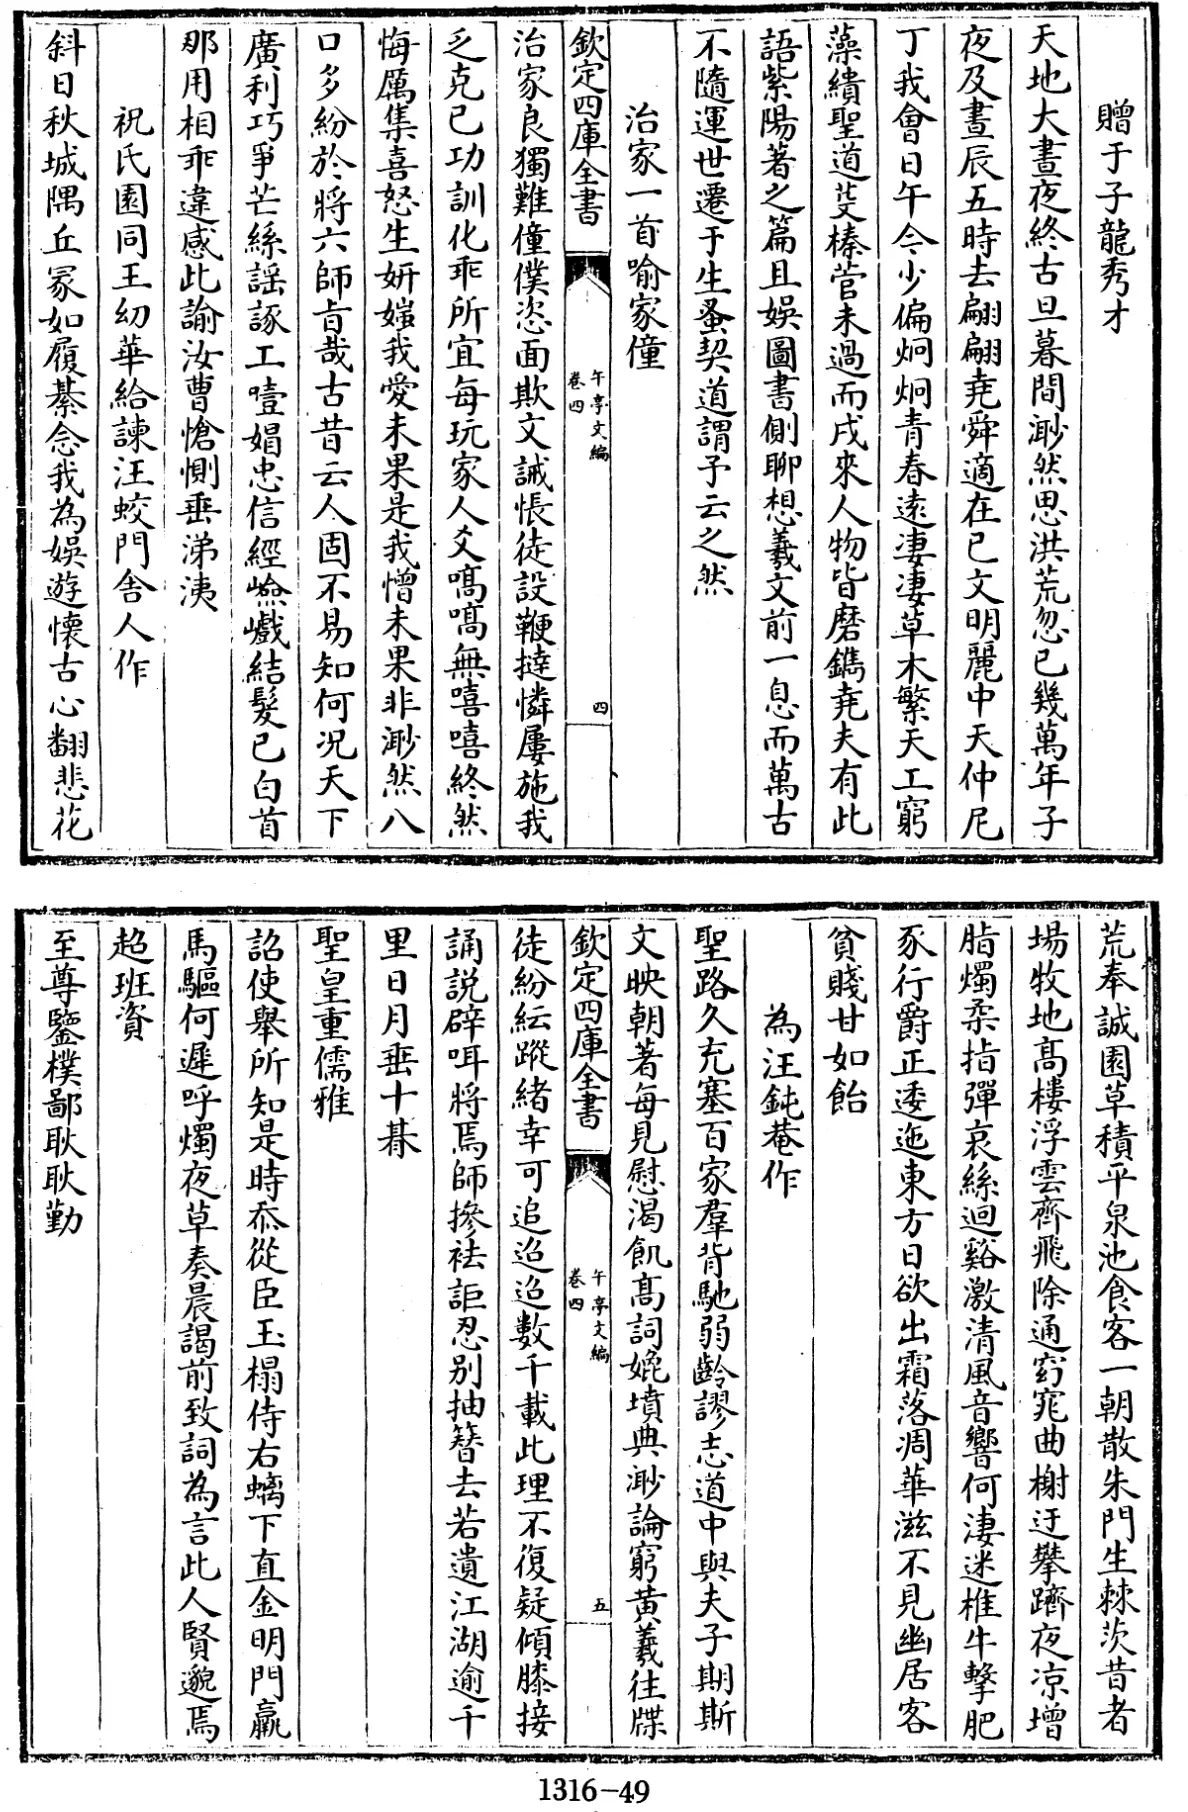 贈于子龍秀才
天地大晝夜終古旦暮間渺然思洪荒忽已幾萬年子
夜及晝辰五時去翩翩堯舜適在已文明麗中天仲尼
丁我會日午今少偏炯炯青春遠淒淒草木繁天工窮
藻繢聖道芟榛菅未過而戌來人物皆磨鐫堯夫有此
語紫陽著之篇且娛圖書側聊想羲文前一息而萬古
不隨運世遷于生蚤契道謂予云之然
治家一首喻家僮
欽定四庫全書
午亭文編
卷四
四
治家良獨難僮僕恣面欺文誡悵徒設鞭撻憐屢施我
乏克已功訓化乖所宜每玩家人爻嗃嗃無嘻嘻終然
悔厲集喜怒生妍媸我愛未果是我憎未果非渺然八
口多紛於將六師旨哉古昔云人固不易知何況天下
廣利巧爭芒絲謡諑工噎娼忠信經嶮巇結髮已白首
那用相乖違感此諭汝曹愴惻垂涕洟
祝氏園同王幼華給諫汪蛟門舍人作
斜日秋城隅丘冢如履綦念我為娛遊懷古心翻悲花
荒奉誠園草積平泉池食客一朝散朱門生棘茨昔者
場牧地高樓浮雲齊飛除通窈窕曲榭迂攀躋夜凉增
脂燭柔指彈哀絲迴谿激清風音響何淒迷椎牛擊肥
豕行爵正逶迤東方日欲出霜落凋華滋不見幽居客
貧賤甘如飴
為汪鈍菴作
聖路久充塞百家羣背馳弱齡謬志道中與夫子期斯
文映朝著每見慰渴飢高詞娩墳典渺論窮黃羲往牒
欽定四庫全書
午亭文編
卷四
五
徒紛紜蹤緒幸可追迢迢數千載此理不復疑傾膝接
誦說辟咡將焉師摻袪詎忍別抽簪去若遺江湖逾千
里日月垂十朞
聖皇重儒雅
詔使舉所知是時忝從臣玉榻侍右螭下直金明門羸
馬驅何遲呼燭夜草奏晨謁前致詞為言此人賢邈焉
超班資
至尊鑒樸鄙耿耿勤
1316-49